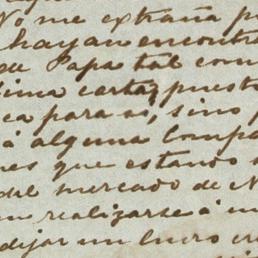 No me extraña p
hayan encontra
su Papa tal com
ima carta, puesto
ca para si, sino p
á alguna Compa
nes que estando
del mercado de N
en realizarse á un
dejar un lucro cr